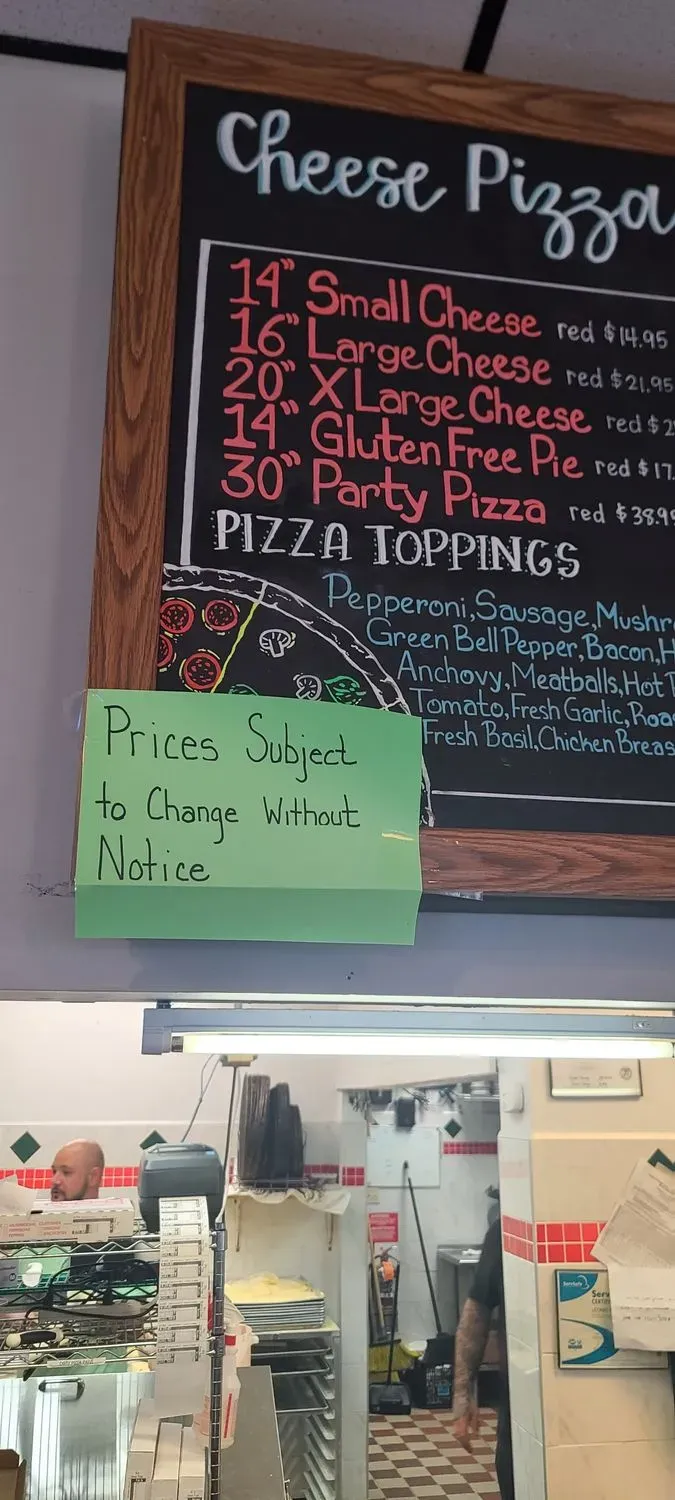 Cheese Pizza
14" Small Cheese red $14.95
16" Large Cheese red $21.95
20" X Large Cheese red $2
14" Gluten Free Pie red $17.
30" Party Pizza red $38.99
PIZZA TOPPINGS
Pepperoni, Sausage, Mushr
Green Bell Pepper, Bacon, H
Anchovy, Meatballs, Hot
Tomato, Fresh Garlic, Roa
Fresh Basil, Chicken Breas
Prices Subject
to Change Without
Notice
ServSafe